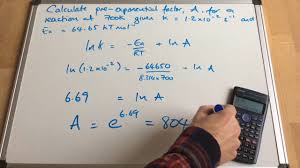 Calculate pre-exponential factor, A, for a
reaction at 700K given k = 1.2×10⁻² s⁻¹ and
Ea = 64.65 kJ mol⁻¹.
ln k = -Ea/RT + ln A
ln(1.2×10⁻²) = -64650/8.314×700 + ln A
6.69 = ln A
A = e^6.69 = 804